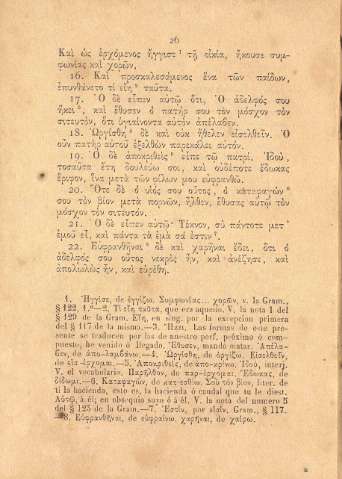 26
Καὶ ὡς ἐρχόμενος ἤγγισε ¹ τῇ οἰκίᾳ, ἤκουσε συμ-
φωνίας καὶ χορῶν.
16. Καὶ προσκαλεσάμενος ἕνα τῶν παίδων,
ἐπυνθάνετο τί εἴη ² ταῦτα.
17. Ὁ δὲ εἶπεν αὐτῷ ὅτι, Ὁ ἀδελφός σου
ἥκει ³ καὶ ἔθυσεν ὁ πατήρ σου τὸν μόσχον τὸν
σιτευτόν, ὅτι ὑγιαίνοντα αὐτὸν ἀπέλαβεν.
18. Ὠργίσθη ⁴ δὲ καὶ οὐκ ἤθελεν εἰσελθεῖν. Ὁ
οὖν πατὴρ αὐτοῦ ἐξελθὼν παρεκάλει αὐτόν.
19. Ὁ δὲ ἀποκριθεὶς ⁵ εἶπε τῷ πατρί, Ἰδού,
τοσαῦτα ἔτη δουλεύω σοι, καὶ οὐδέποτε ἔδωκας
ἔριφον, ἵνα μετὰ τῶν φίλων μου εὐφρανθῶ.
20. Ὅτε δὲ ὁ υἱός σου οὗτος, ὁ καταφαγών ⁶
σου τὸν βίον μετὰ πορνῶν, ἦλθεν, ἔθυσας αὐτῷ τὸν
μόσχον τὸν σιτευτόν.
21. Ὁ δὲ εἶπεν αὐτῷ· Τέκνον, σὺ πάντοτε μετ'
ἐμοῦ εἶ, καὶ πάντα τὰ ἐμὰ σά ἐστιν ⁷.
22. Εὐφρανθῆναι ⁸ δὲ καὶ χαρῆναι ἔδει, ὅτι ὁ
ἀδελφός σου οὗτος νεκρὸς ἦν, καὶ ἀνέζησε, καὶ
ἀπολωλὼς ἦν, καὶ εὑρέθη.
1. Ἤγγισε, de ἐγγίζω. Συμφωνίας... χορῶν, v. la Gram.,
§ 122, 1.º—2. Τί εἴη ταῦτα, que era aquello. V. la nota 1 del
§ 129 de la Gram. Εἴη, en sing. por la excepcion primera
del § 117 de la misma.—3. Ἥκει, Las formas de este pre-
sente se traducen por las de nuestro perf. próximo ó com-
puesto, he venido ó llegado. Ἔθυσεν, mandó matar. Ἀπέλα-
βεν, de ἀπο-λαμβάνω.—4. Ὠργίσθη, de ὀργίζω. Εἰσελθεῖν,
de εἰσ-έρχομαι.—5. Ἀποκριθείς, de ἀπο-κρίνω. Ἰδού, interj.
V. el vocabulario. Παρῆλθον, de παρ-έρχομαι. Ἔδωκας, de
δίδωμι.—6. Καταφαγών, de κατ-εσθίω. Σοῦ τὸν βίον, liter. de
ti la hacienda, esto es, la hacienda ó caudal que tu le diest.
Αὐτῷ, á él; en obsequio suyo ó á él. V. la nota del numero 5
del § 125 de la Gram.—7. Ἐστίν, por εἰσίν, Gram., § 117.
—8. Εὐφρανθῆναι, de εὐφραίνω. χαρῆναι, de χαίρω.